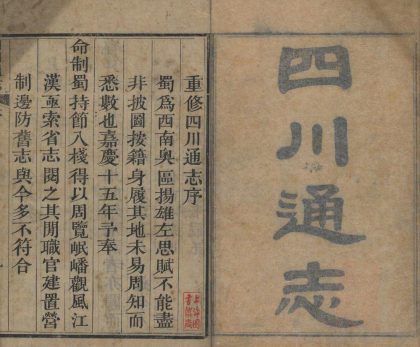 四川通志
重修四川通志序
蜀為西南奧區揚雄左思賦不能盡
非披圖按籍身履其地未易周知而
悉數也嘉慶十五年予奉
命制蜀持節入棧得以周覽岷嶓觀風江
漢亟索省志閱之其閒職官建置營
制邊防舊志與今多不符合